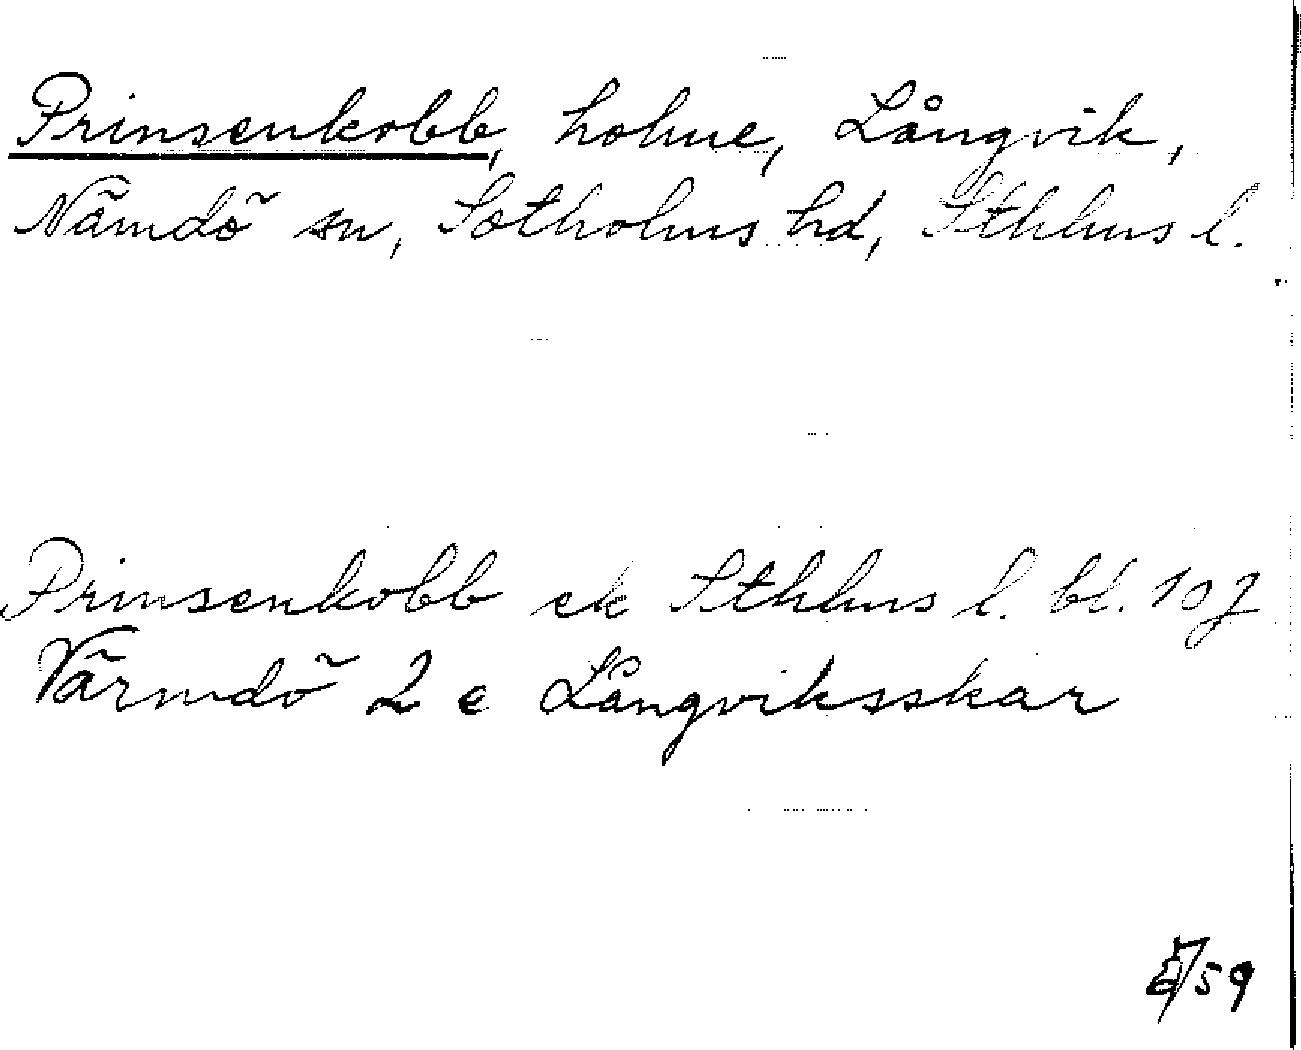 Prinsenkobb, holme, Långvik,
Nämdö sn, Sotholms hd, Sthlms l.
Prinsenkobb ek Sthlms l. bl. 107
Värmdö 2 e Långviksskär
59